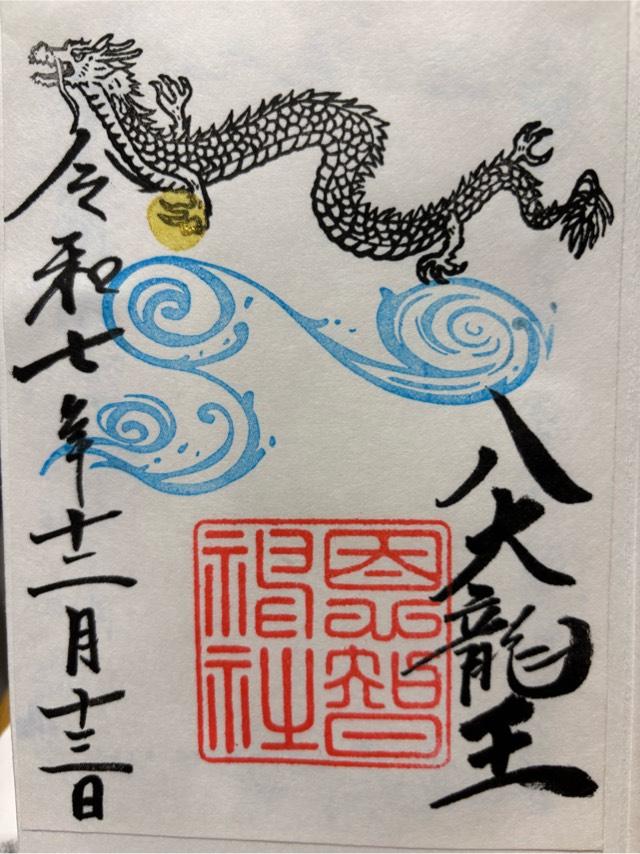 八大龍王
恩智
神社
令和七年十二月十三日